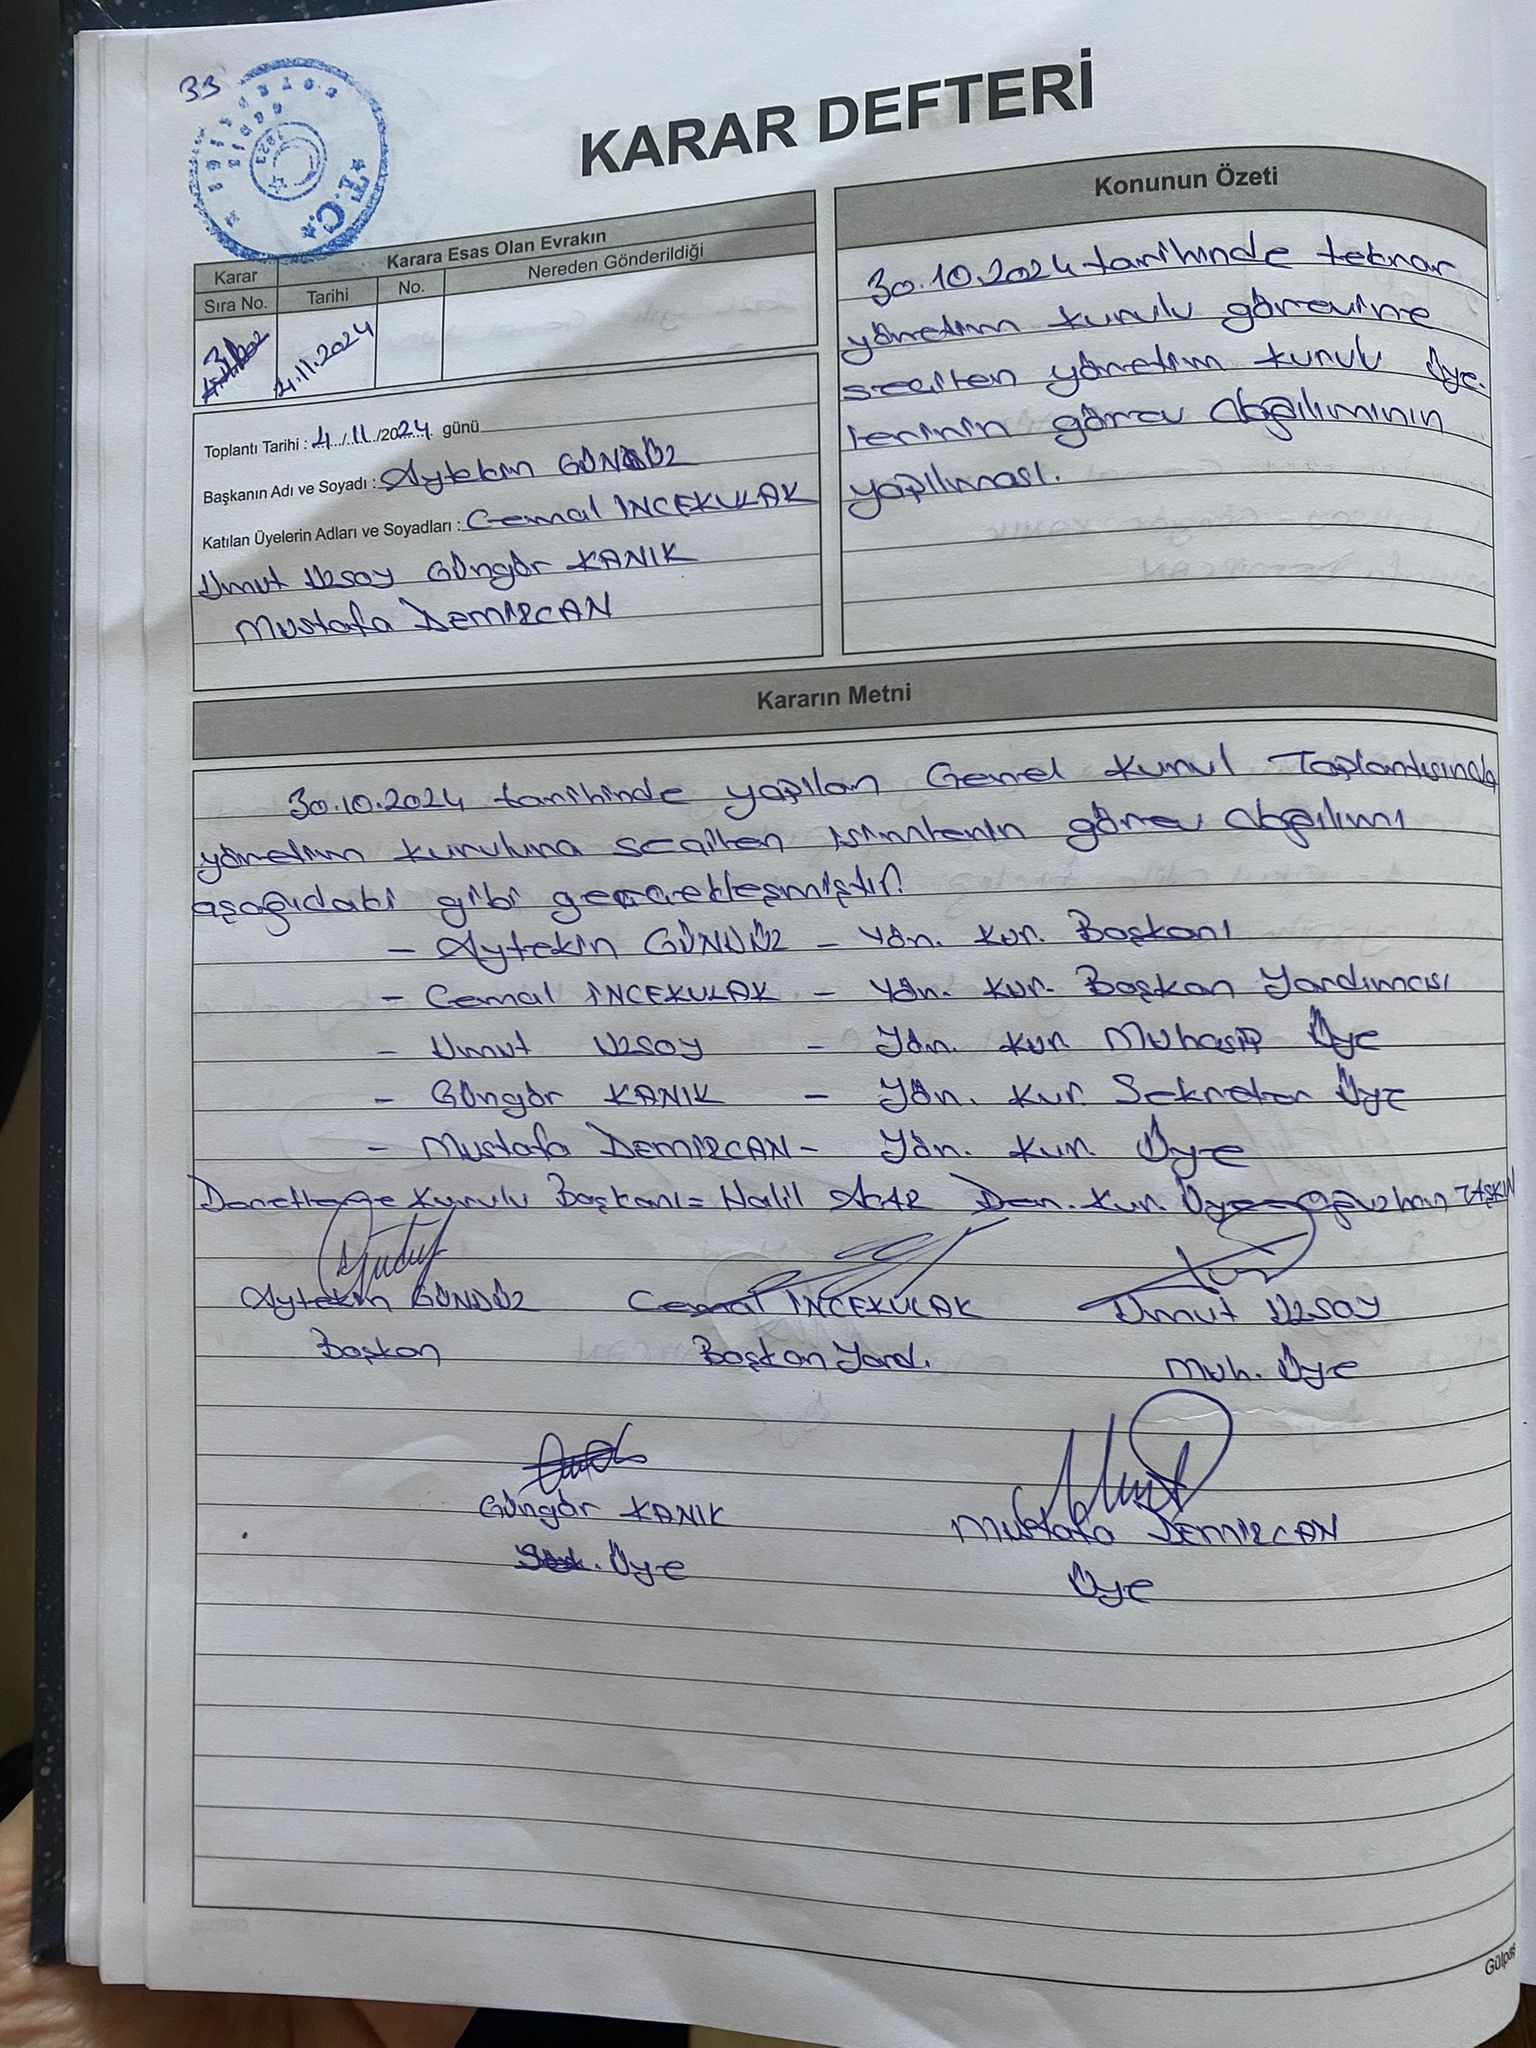 33
T.C.
KARAR DEFTERİ
Karar
Sıra No.
Karara Esas Olan Evrakın
Tarihi
No.
Nereden Gönderildiği
4.11.2024
Toplantı Tarihi : 4/11/2024 günü
Başkanın Adı ve Soyadı : Aytekin GÜNDÜZ
Katılan Üyelerin Adları ve Soyadları : Cemal İNCEKULAK
Umut UZSOY Güngör KANIK
Mustafa DEMİRCAN
Konunun Özeti
30.10.2024 tarihinde tekrar
yönetim kurulu görevine
seçilen yönetim kurulu üye
lerinin görev dağılımının
yapılması.
Kararın Metni
30.10.2024 tarihinde yapılan Genel Kurul Toplantısında
yönetim kuruluna seçilen isimlerin görev dağılımı
aşağıdaki gibi gerçekleşmiştir.
- Aytekin GÜNDÜZ - Yön. Kur. Başkanı
- Cemal İNCEKULAK - Yön. Kur. Başkan Yardımcısı
- Umut UZSOY - Yön. Kur. Muhasip Üye
- Güngör KANIK - Yön. Kur. Sekreter Üye
- Mustafa DEMİRCAN - Yön. Kur. Üye
Denetleme Kurulu Başkanı = Halil Den. Kur. Üye Oğuzhan TAŞKIN
Aytekin GÜNDÜZ Cemal İNCEKULAK Umut UZSOY
Başkan Başkan Yard. Muh. Üye
Güngör KANIK Mustafa DEMİRCAN
Sek. Üye Üye